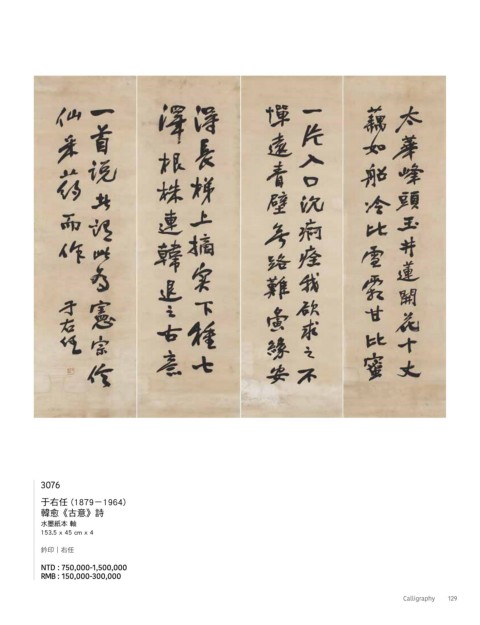 太華峰頭玉井蓮開花十丈
藕如船冷比雪霜甘比蜜
一片入口沈痾痊我欲求之不
憚遠青壁無路難夤緣安
得長梯上摘實下種七
澤根株連韓退之古意
一首說者謂此為憲宗信
仙采药而作 于右任
3076
于右任 (1879－1964)
韓愈《古意》詩
水墨紙本 軸
153.5 x 45 cm x 4
鈐印｜右任
NTD : 750,000-1,500,000
RMB : 150,000-300,000
Calligraphy 129